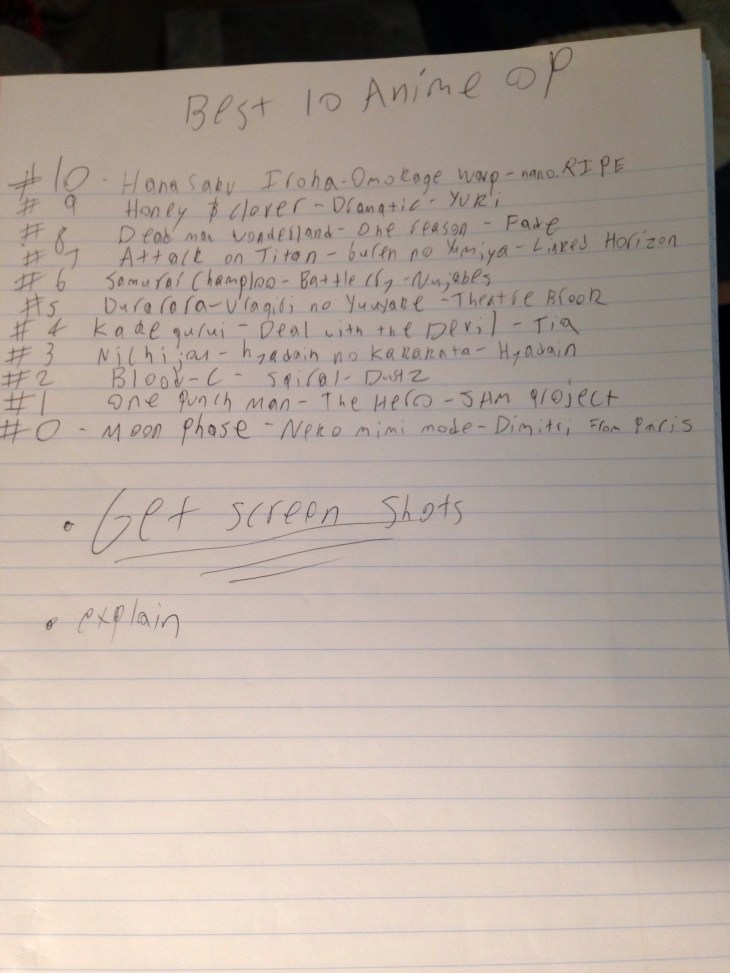 Best 10 Anime OP
#10 - Hana Saku Iroha - Omokage warp - nano.RIPE
# 9 Honey & Clover - Dramatic - YUKi
# 8 Dead man wonderland - One reason - Fade
# 7 Attack on Titan - Guren no Yumiya - Linked Horizon
# 6 Samurai Champloo - Battle Cry - Nujabes
#5 Durarara - Uragiri no Yuuyake - Theatre Brook
# 4 Kakegurui - Deal with the Devil - Tia
# 3 Nichijou - hyadain no Kakakata - Hyadain
#2 Blood-C - Spiral - Dustz
#1 One Punch Man - The Hero - JAM project
#0 - Moon phase - Neko mimi mode - Dimitri From Paris
• Get screen shots
• explain